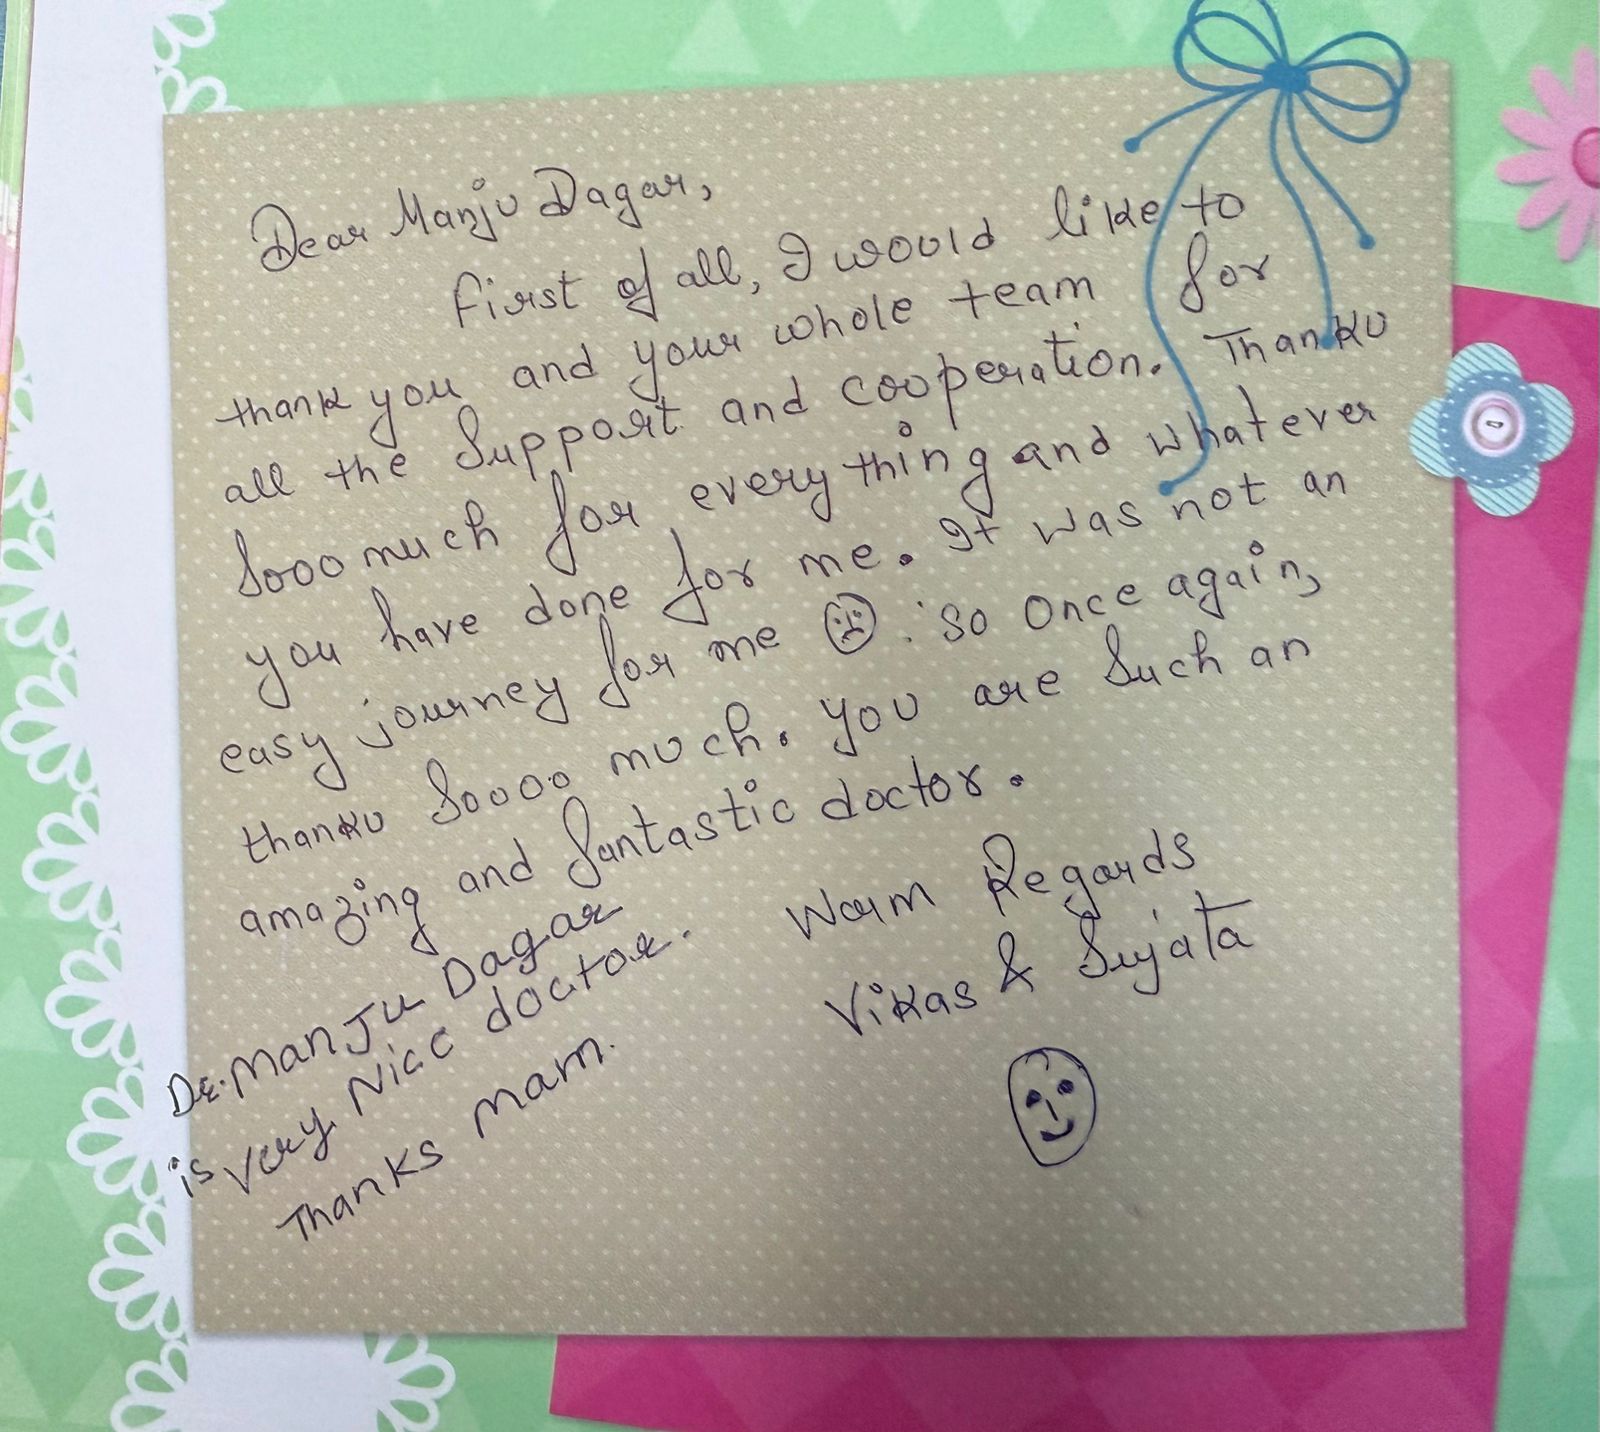 Dear Manju Dagar,
first of all, I would like to
thank you and your whole team for
all the support and cooperation. Thanku
sooo much for everything and whatever
you have done for me. It was not an
easy journey for me ☹. so once again,
thanku soooo much. you are such an
amazing and fantastic doctor.
Warm Regards
Vikas & Sujata
Dr. Manju Dagar
is very Nice doctor.
Thanks mam.